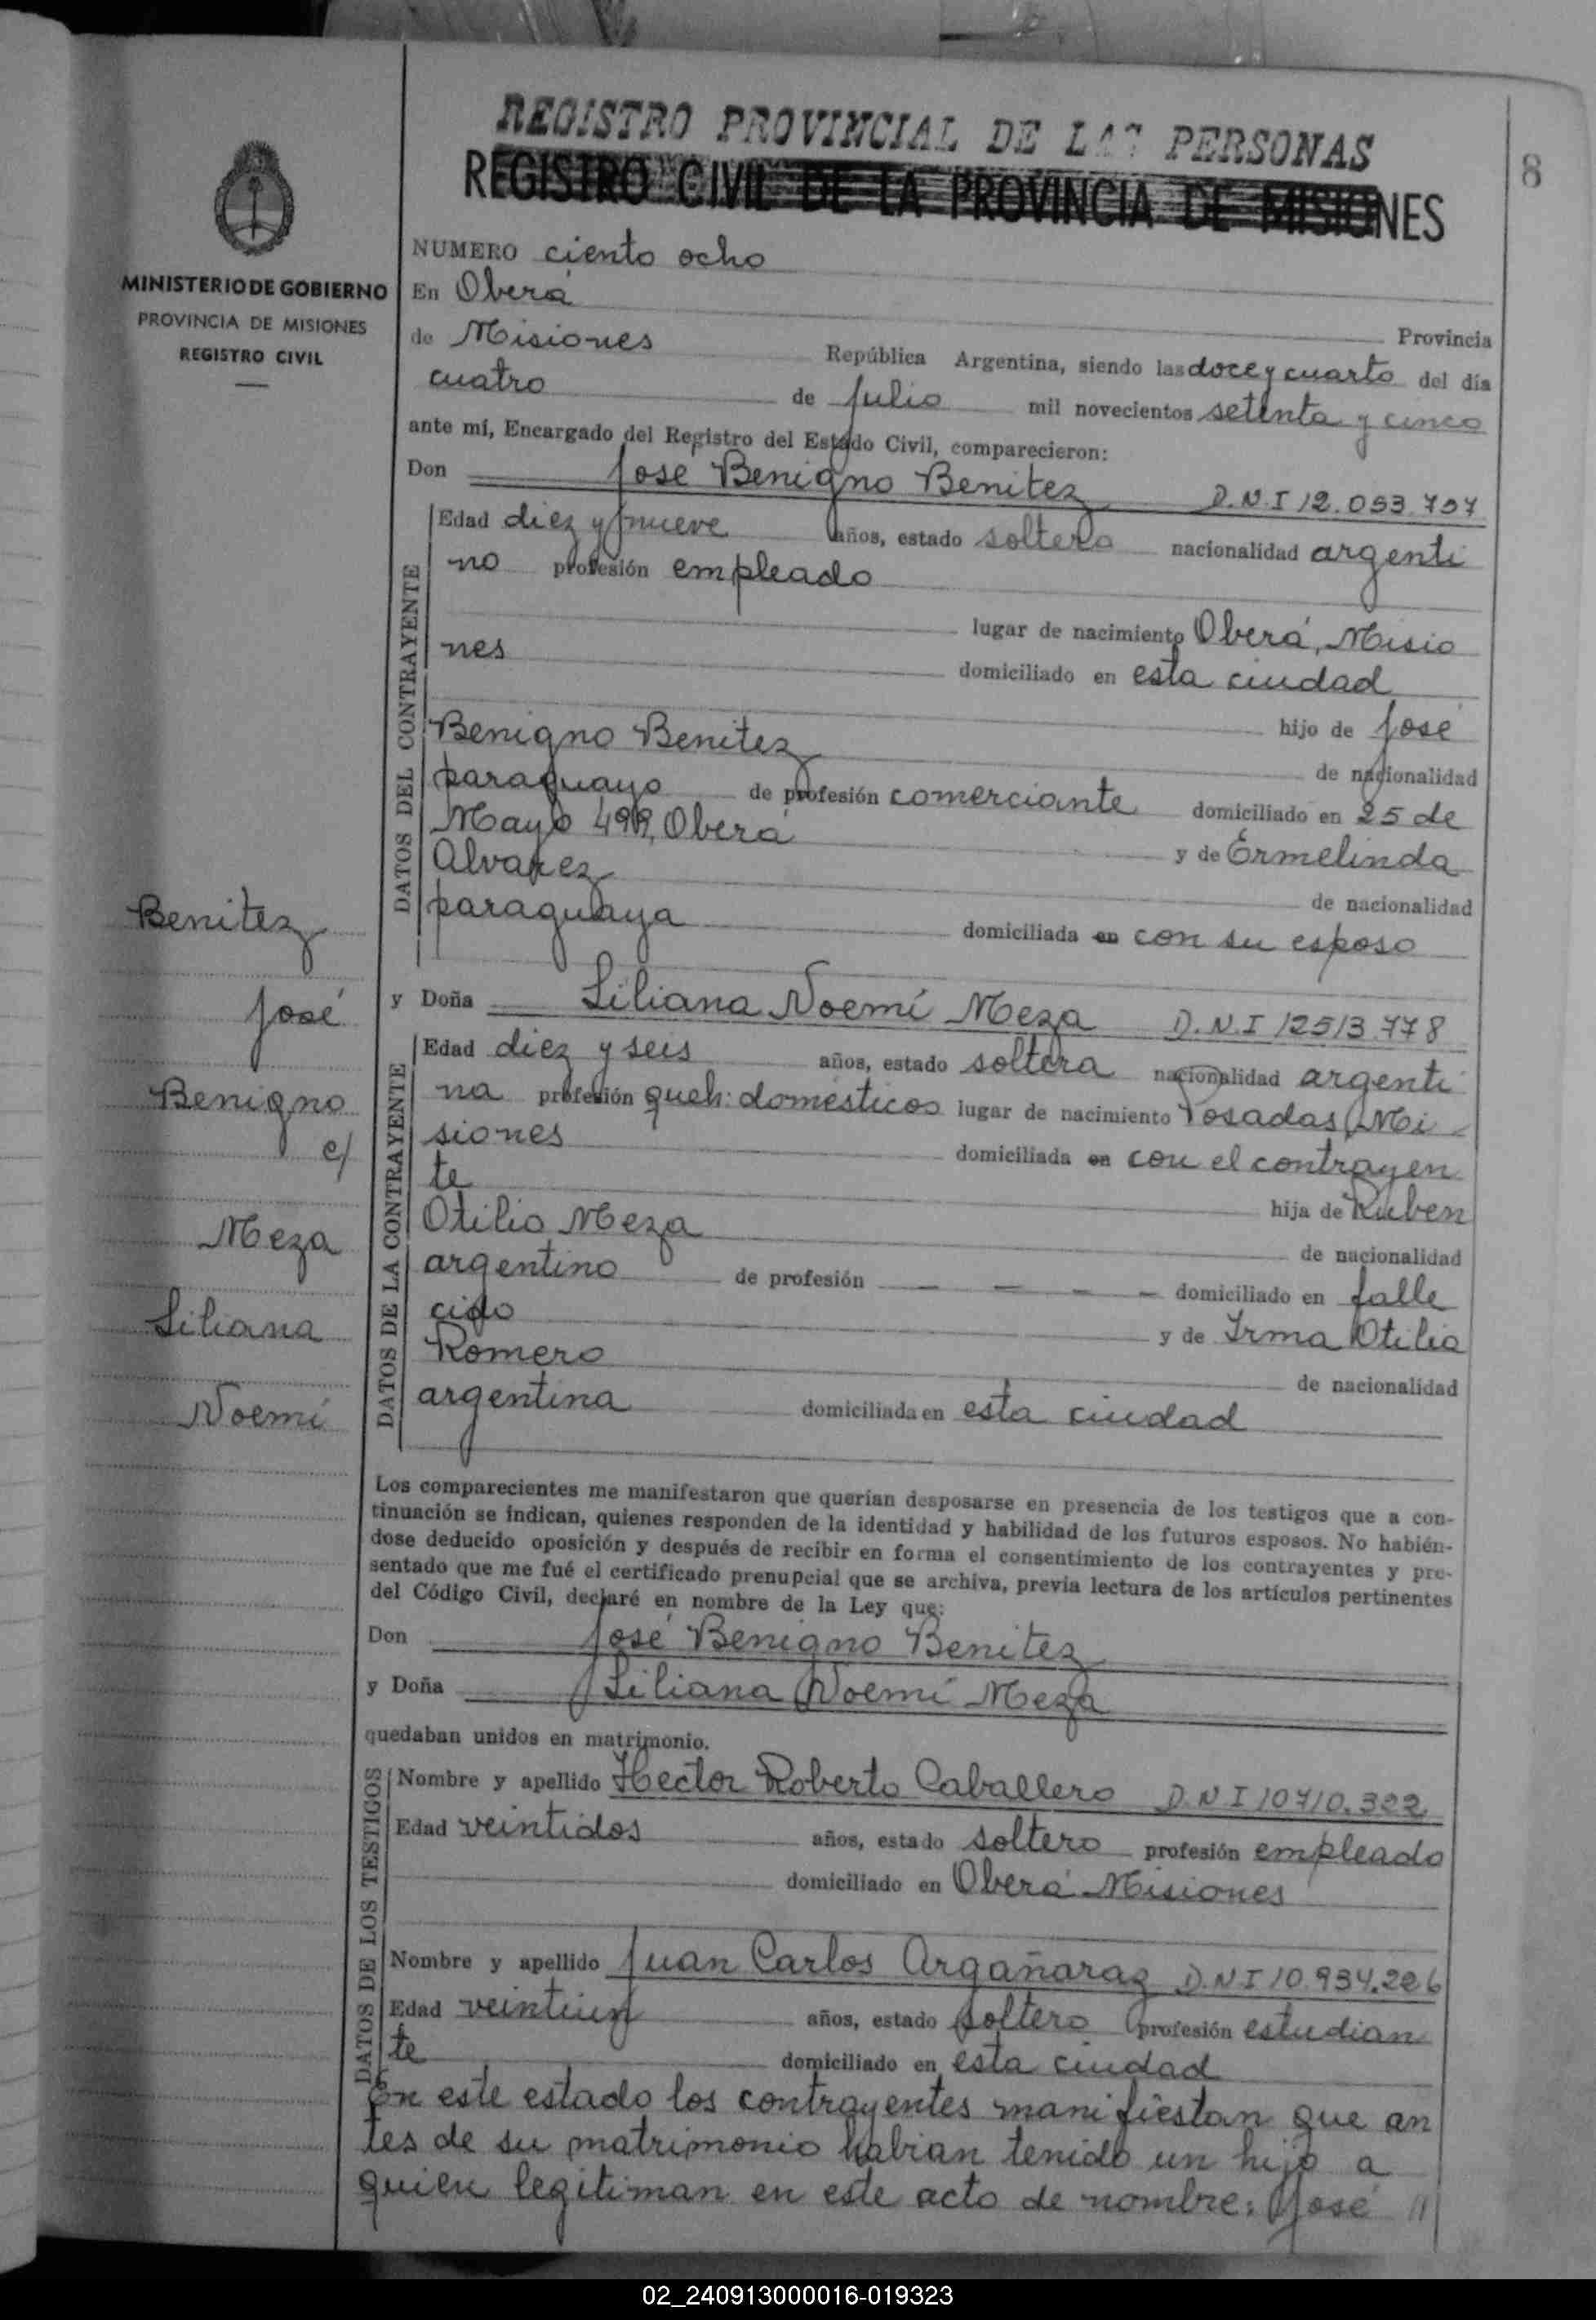 REGISTRO PROVINCIAL DE LAS PERSONAS
REGISTRO CIVIL DE LA PROVINCIA DE MISIONES
8
MINISTERIO DE GOBIERNO
PROVINCIA DE MISIONES
REGISTRO CIVIL
NUMERO ciento ocho
En Oberá Provincia
de Misiones República Argentina, siendo las doce y cuarto del día
cuatro de Julio mil novecientos setenta y cinco
ante mí, Encargado del Registro del Estado Civil, comparecieron:
Don José Benigno Benitez D.N.I 12.053.757
DATOS DEL CONTRAYENTE
Edad diez y nueve años, estado soltero nacionalidad argenti
no profesión empleado
lugar de nacimiento Oberá, Misio
nes domiciliado en esta ciudad
hijo de José
Benigno Benitez de nacionalidad
paraguayo de profesión comerciante domiciliado en 25 de
Mayo 499, Oberá y de Ermelinda
Alvarez de nacionalidad
paraguaya domiciliada en con su esposo
Benitez
José
Benigno
c/
Meza
Liliana
Noemí
y Doña Liliana Noemí Meza D.N.I 12513.778
DATOS DE LA CONTRAYENTE
Edad diez y seis años, estado soltera nacionalidad argenti
na profesión queh: domésticos lugar de nacimiento Posadas, Mi
siones domiciliada en con el contrayen
te hija de Ruben
Otilio Meza de nacionalidad
argentino de profesión — — — — domiciliado en falle
cido y de Irma Otilia
Romero de nacionalidad
argentina domiciliada en esta ciudad
Los comparecientes me manifestaron que querían desposarse en presencia de los testigos que a con-
tinuación se indican, quienes responden de la identidad y habilidad de los futuros esposos. No habién-
dose deducido oposición y después de recibir en forma el consentimiento de los contrayentes y pre-
sentado que me fué el certificado prenupcial que se archiva, previa lectura de los artículos pertinentes
del Código Civil, declaré en nombre de la Ley que:
Don José Benigno Benitez
y Doña Liliana Noemí Meza
quedaban unidos en matrimonio.
DATOS DE LOS TESTIGOS
Nombre y apellido Hector Roberto Caballero D.N.I 10710.322
Edad veintidos años, estado soltero profesión empleado
domiciliado en Oberá Misiones
Nombre y apellido Juan Carlos Argañaraz D.N.I 10.934.226
Edad veintiun años, estado soltero profesión estudian
te domiciliado en esta ciudad
En este estado los contrayentes manifiestan que an
tes de su matrimonio habian tenido un hijo a
quien legitiman en este acto de nombre: José //
02_240913000016-019323